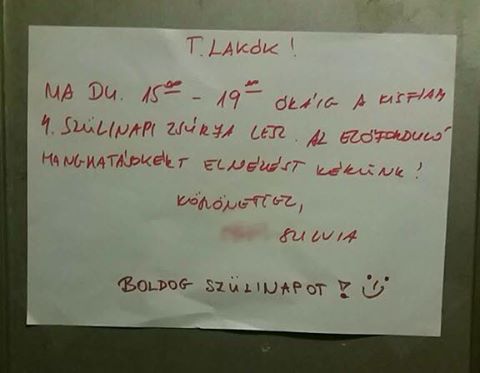 T. LAKÓK!
MA DU. 15⁰⁰ - 19⁰⁰ ÓRÁIG A KISFIAM
4. SZÜLINAPI ZSÚRJA LESZ. AZ ELŐFORDULÓ
HANGHATÁSOKÉRT ELNÉZÉST KÉRÜNK!
KÖSZÖNETTEL,
SZILVIA
BOLDOG SZÜLINAPOT!